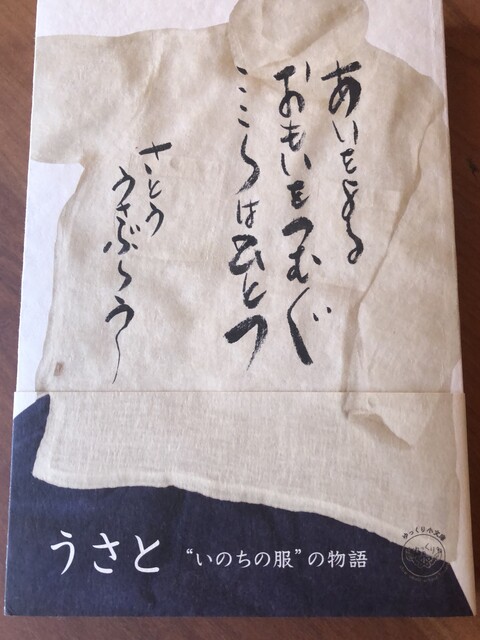 あいをよる
おもいをつむぐ
こころはひとつ
さとう
うさぶろう
うさと “いのちの服”の物語
ゆっくり小文庫